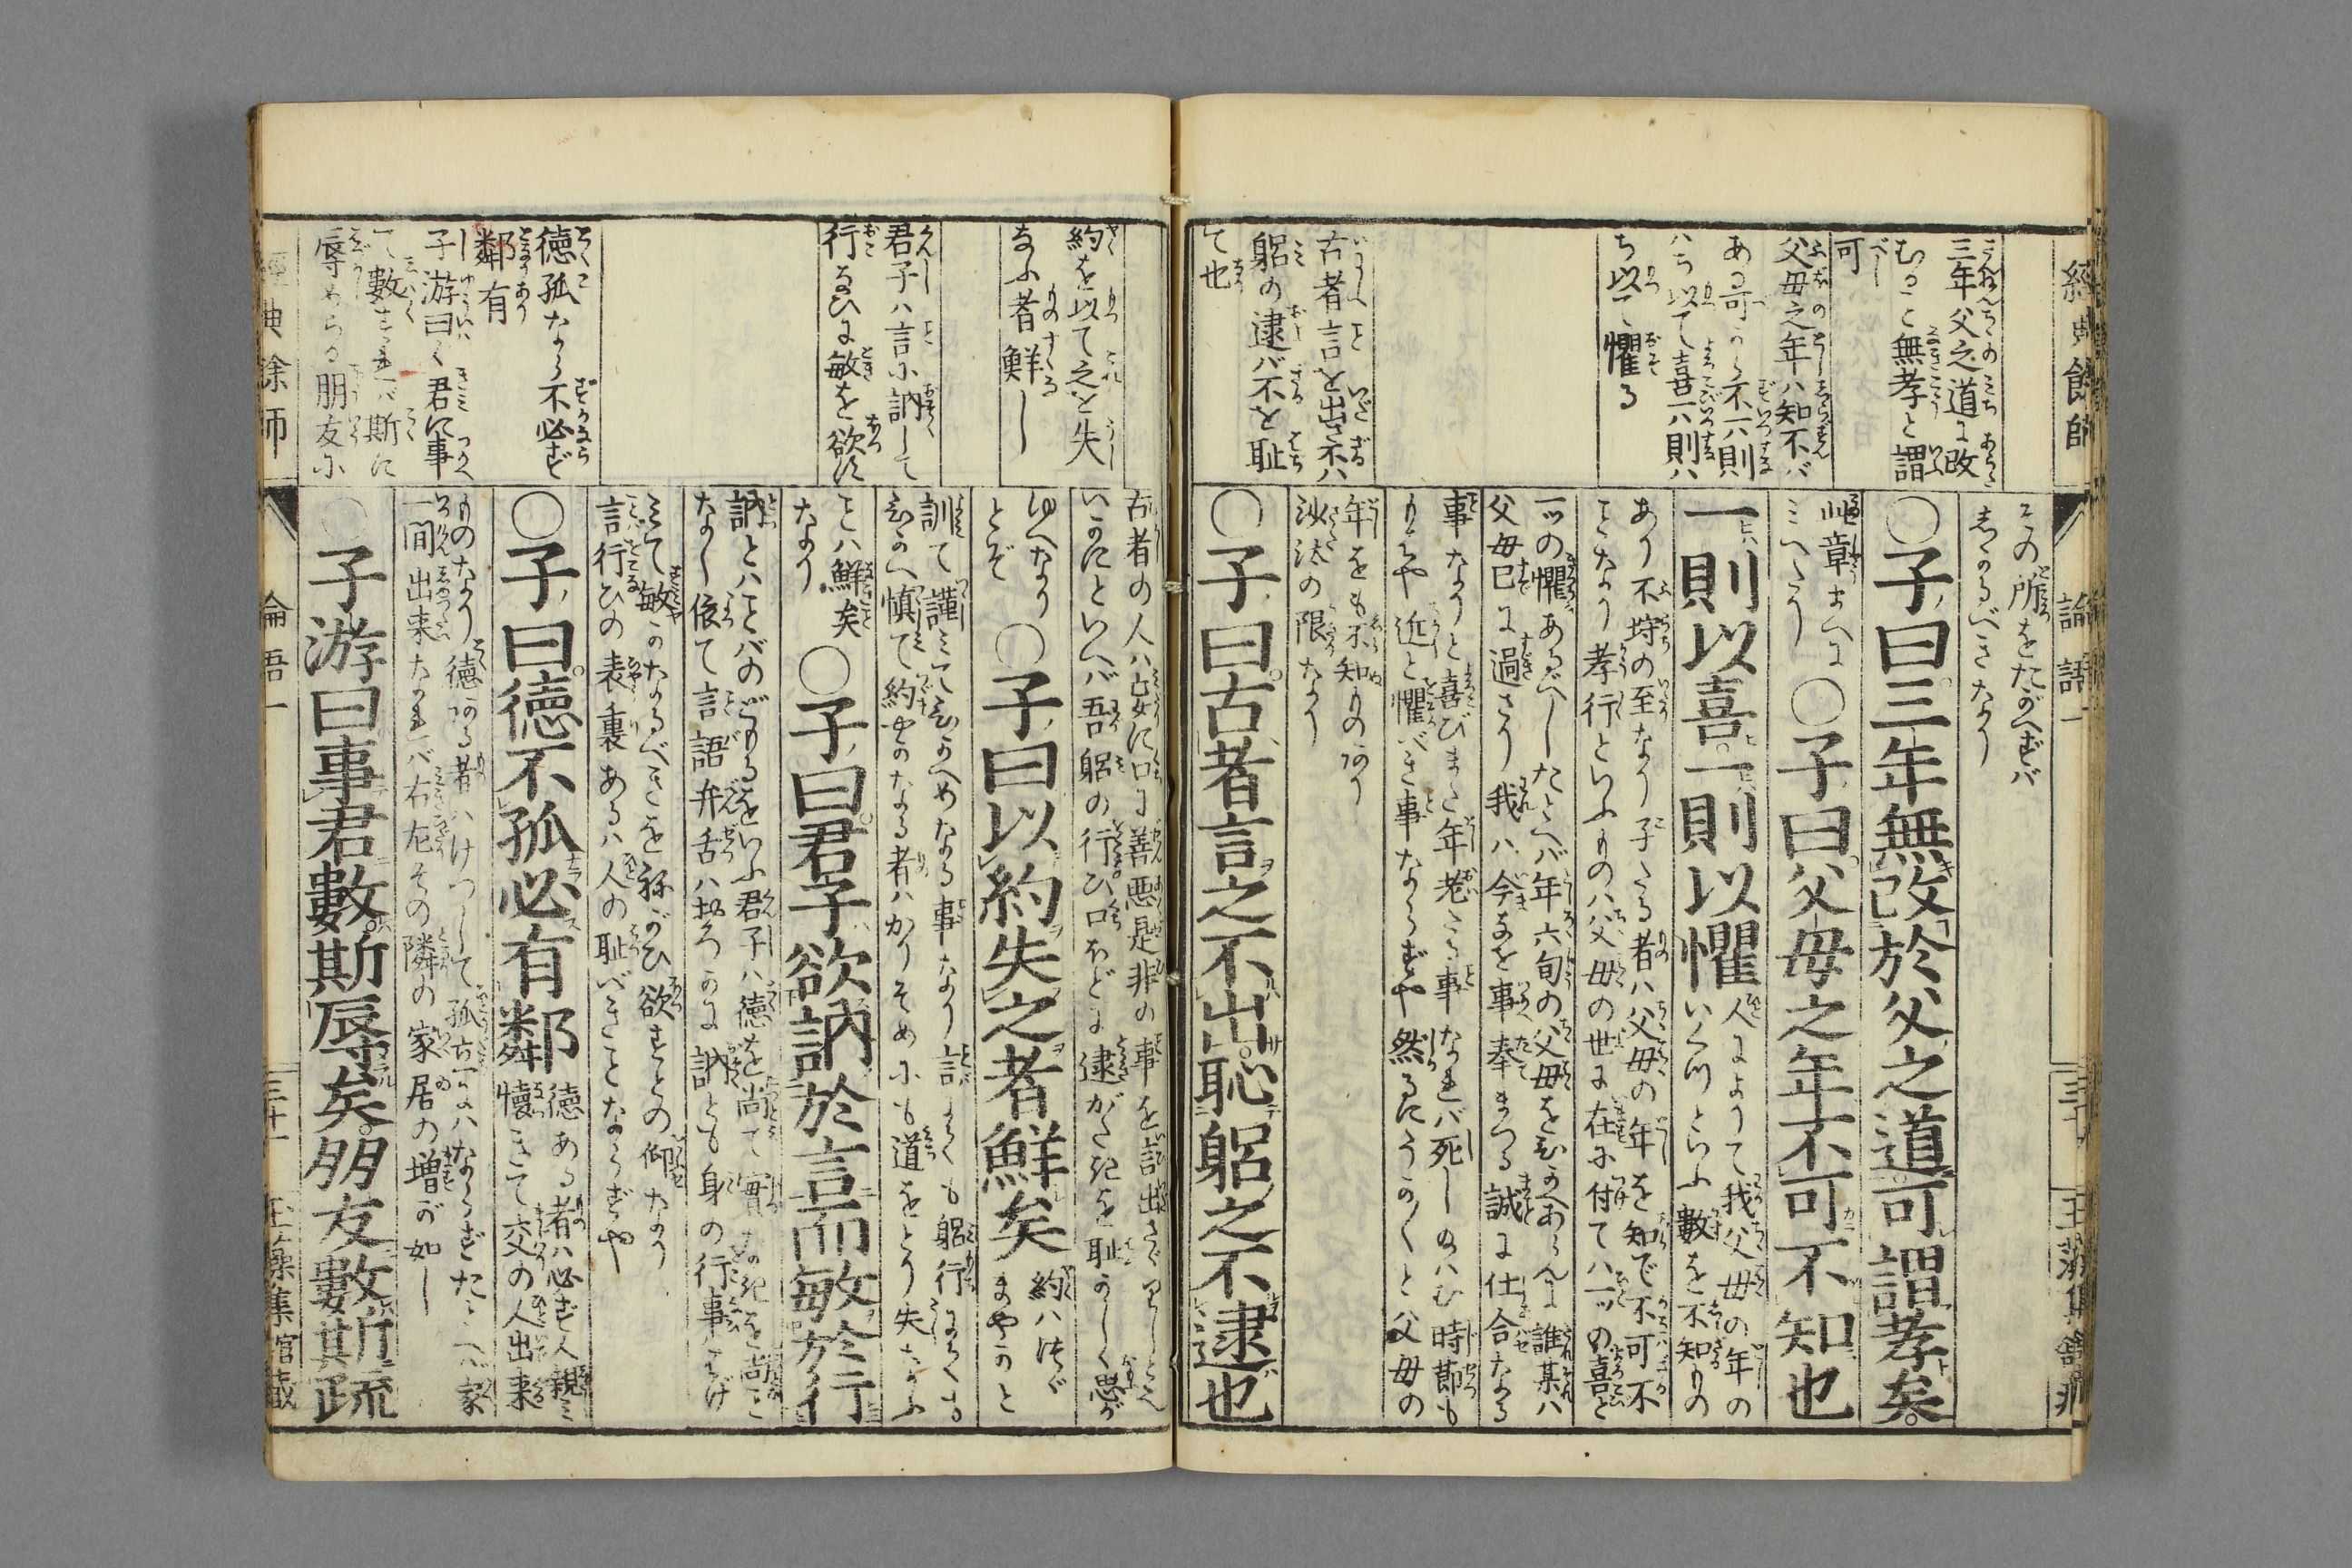 經典餘師
論語一
三十
三年父之道に改
むること無孝と謂
可
父母之年ハ知不バ
ある可から不一六則
ハち以て喜一六則ハ
ち以て懼る
古者言を出さ不ハ
躬の逮バ不を恥
て也
その所をたがへずバ
しかるべきなり
○子曰三年無改於父之道可謂孝矣
此章まへに
みへたり
○子曰父母之年不可不知也
一則以喜一則以懼
人によりて我父母の年の
いくつといふ數を不知もの
あり不埒の至なり子たる者ハ父母の年を知で不可不
ことなり孝行といふものハ父母の世に在に付てハ一ッの喜と
一ッの懼あるべしたとヘバ年六旬の父母をむかへあらんに誰某ハ
父母已に過さり我ハ今まを事奉まつる誠に仕合なる
事なりと喜びまた年老たる事なれバ死しのハむ時節も
もはや近と懼べき事ならずや然るにうかくと父母の
年をも不知もの有り
沙汰の限なり
○子曰古者言之不出恥躬之不逮也
約を以て之を失
なふ者鮮し
君子ハ言に訥して
行なひに敏を欲す
徳孤なら不必ず
鄰有
子游曰く君に事
て數すれバ斯に
辱めらる朋友に
古者の人ハ妄に口に善悪是非の事を言出さゞりしとぞ
いかにといへバ吾躬の行ひ口ほどに逮がたきを恥かしく思が
ゆへなり
とぞ
○子曰以約失之者鮮矣
約ハつゞ
まやかと
訓て謹みてひかへめなる事なり言よくも躬行よくも
ひかへ慎て約やかなる者ハかりそめにも道をとり失なふ
ことハ鮮矣
なり
○子曰君子欲訥於言而敏於行
訥とハことバのどもるをいふ君子ハ徳を尚て實なきを尚こと
なし依て言語弁舌ハおろかに訥とも身の行事さげ
みて敏かなるべきを祢がひ欲すとの仰なり
言行ひの表裏あるハ人の恥べきことならずや
○子曰徳不孤必有鄰
徳ある者ハ必ず人親み
懐きて交の人出来
ものなり徳ある者ハけつして孤立にハならずたとヘバ家
一間出来たれバ右左その隣の家居の増が如し
○子游曰事君數斯辱矣朋友數斯疏
經典餘師
論語一
三十一
玉藻集館蔵